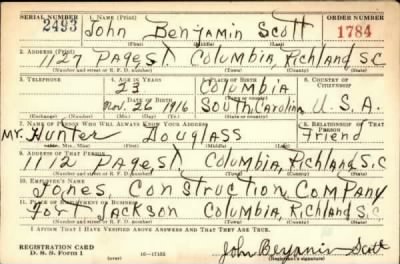 SERIAL NUMBER 1. NAME (Print) ORDER NUMBER
2493 John Benjamin Scott 1784
(First) (Middle) (Last)
2. ADDRESS (Print)
1127 Page St. Columbia, Richland S.C
(Number and street or R. F. D. number) (Town) (County) (State)
3. TELEPHONE 4. AGE IN YEARS 5. PLACE OF BIRTH 6. COUNTRY OF CITIZENSHIP
23 Columbia
DATE OF BIRTH
Nov. 26 1916 South Carolina U.S.A.
(Exchange) (Number) (Mo.) (Day) (Yr.) (State or country)
7. NAME OF PERSON WHO WILL ALWAYS KNOW YOUR ADDRESS 8. RELATIONSHIP OF THAT PERSON
Mr. Hunter Douglass Friend
(Mr., Mrs., Miss) (First) (Middle) (Last)
9. ADDRESS OF THAT PERSON
1112 Page St. Columbia, Richland S.C
(Number and street or R. F. D. number) (Town) (County) (State)
10. EMPLOYER'S NAME
Jones, Construction Company
11. PLACE OF EMPLOYMENT OR BUSINESS
Fort Jackson Columbia, Richland S.C
(Number and street or R. F. D. number) (Town) (County) (State)
I AFFIRM THAT I HAVE VERIFIED ABOVE ANSWERS AND THAT THEY ARE TRUE.
REGISTRATION CARD
D. S. S. Form 1 (over) 16—17105 John Benjamin Scott